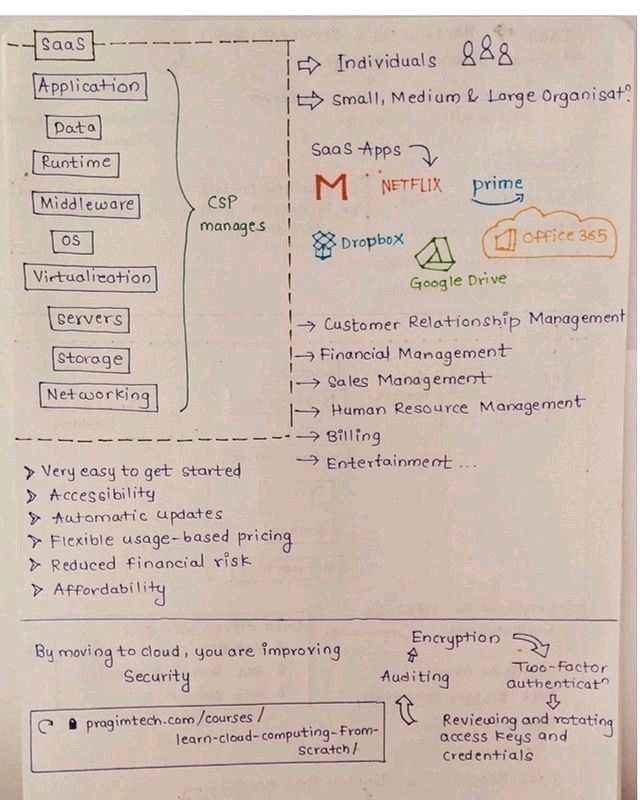 SaaS
Application
Data
Runtime
Middleware
OS
Virtualization
Servers
Storage
Networking
CSP
manages
Individuals
Small, Medium & Large Organisatn.
SaaS Apps
M
NETFLIX
prime
Dropbox
Google Drive
Office 365
→ Customer Relationship Management
→ Financial Management
→ Sales Management
→ Human Resource Management
→ Billing
→ Entertainment ...
Very easy to get started
Accessibility
Automatic updates
Flexible usage-based pricing
Reduced financial risk
Affordability
By moving to cloud, you are improving
Security
pragimtech.com/courses/
learn-cloud-computing-from-
scratch/
Encryption
Two-factor
authenticatn
Reviewing and rotating
access keys and
credentials
Auditing